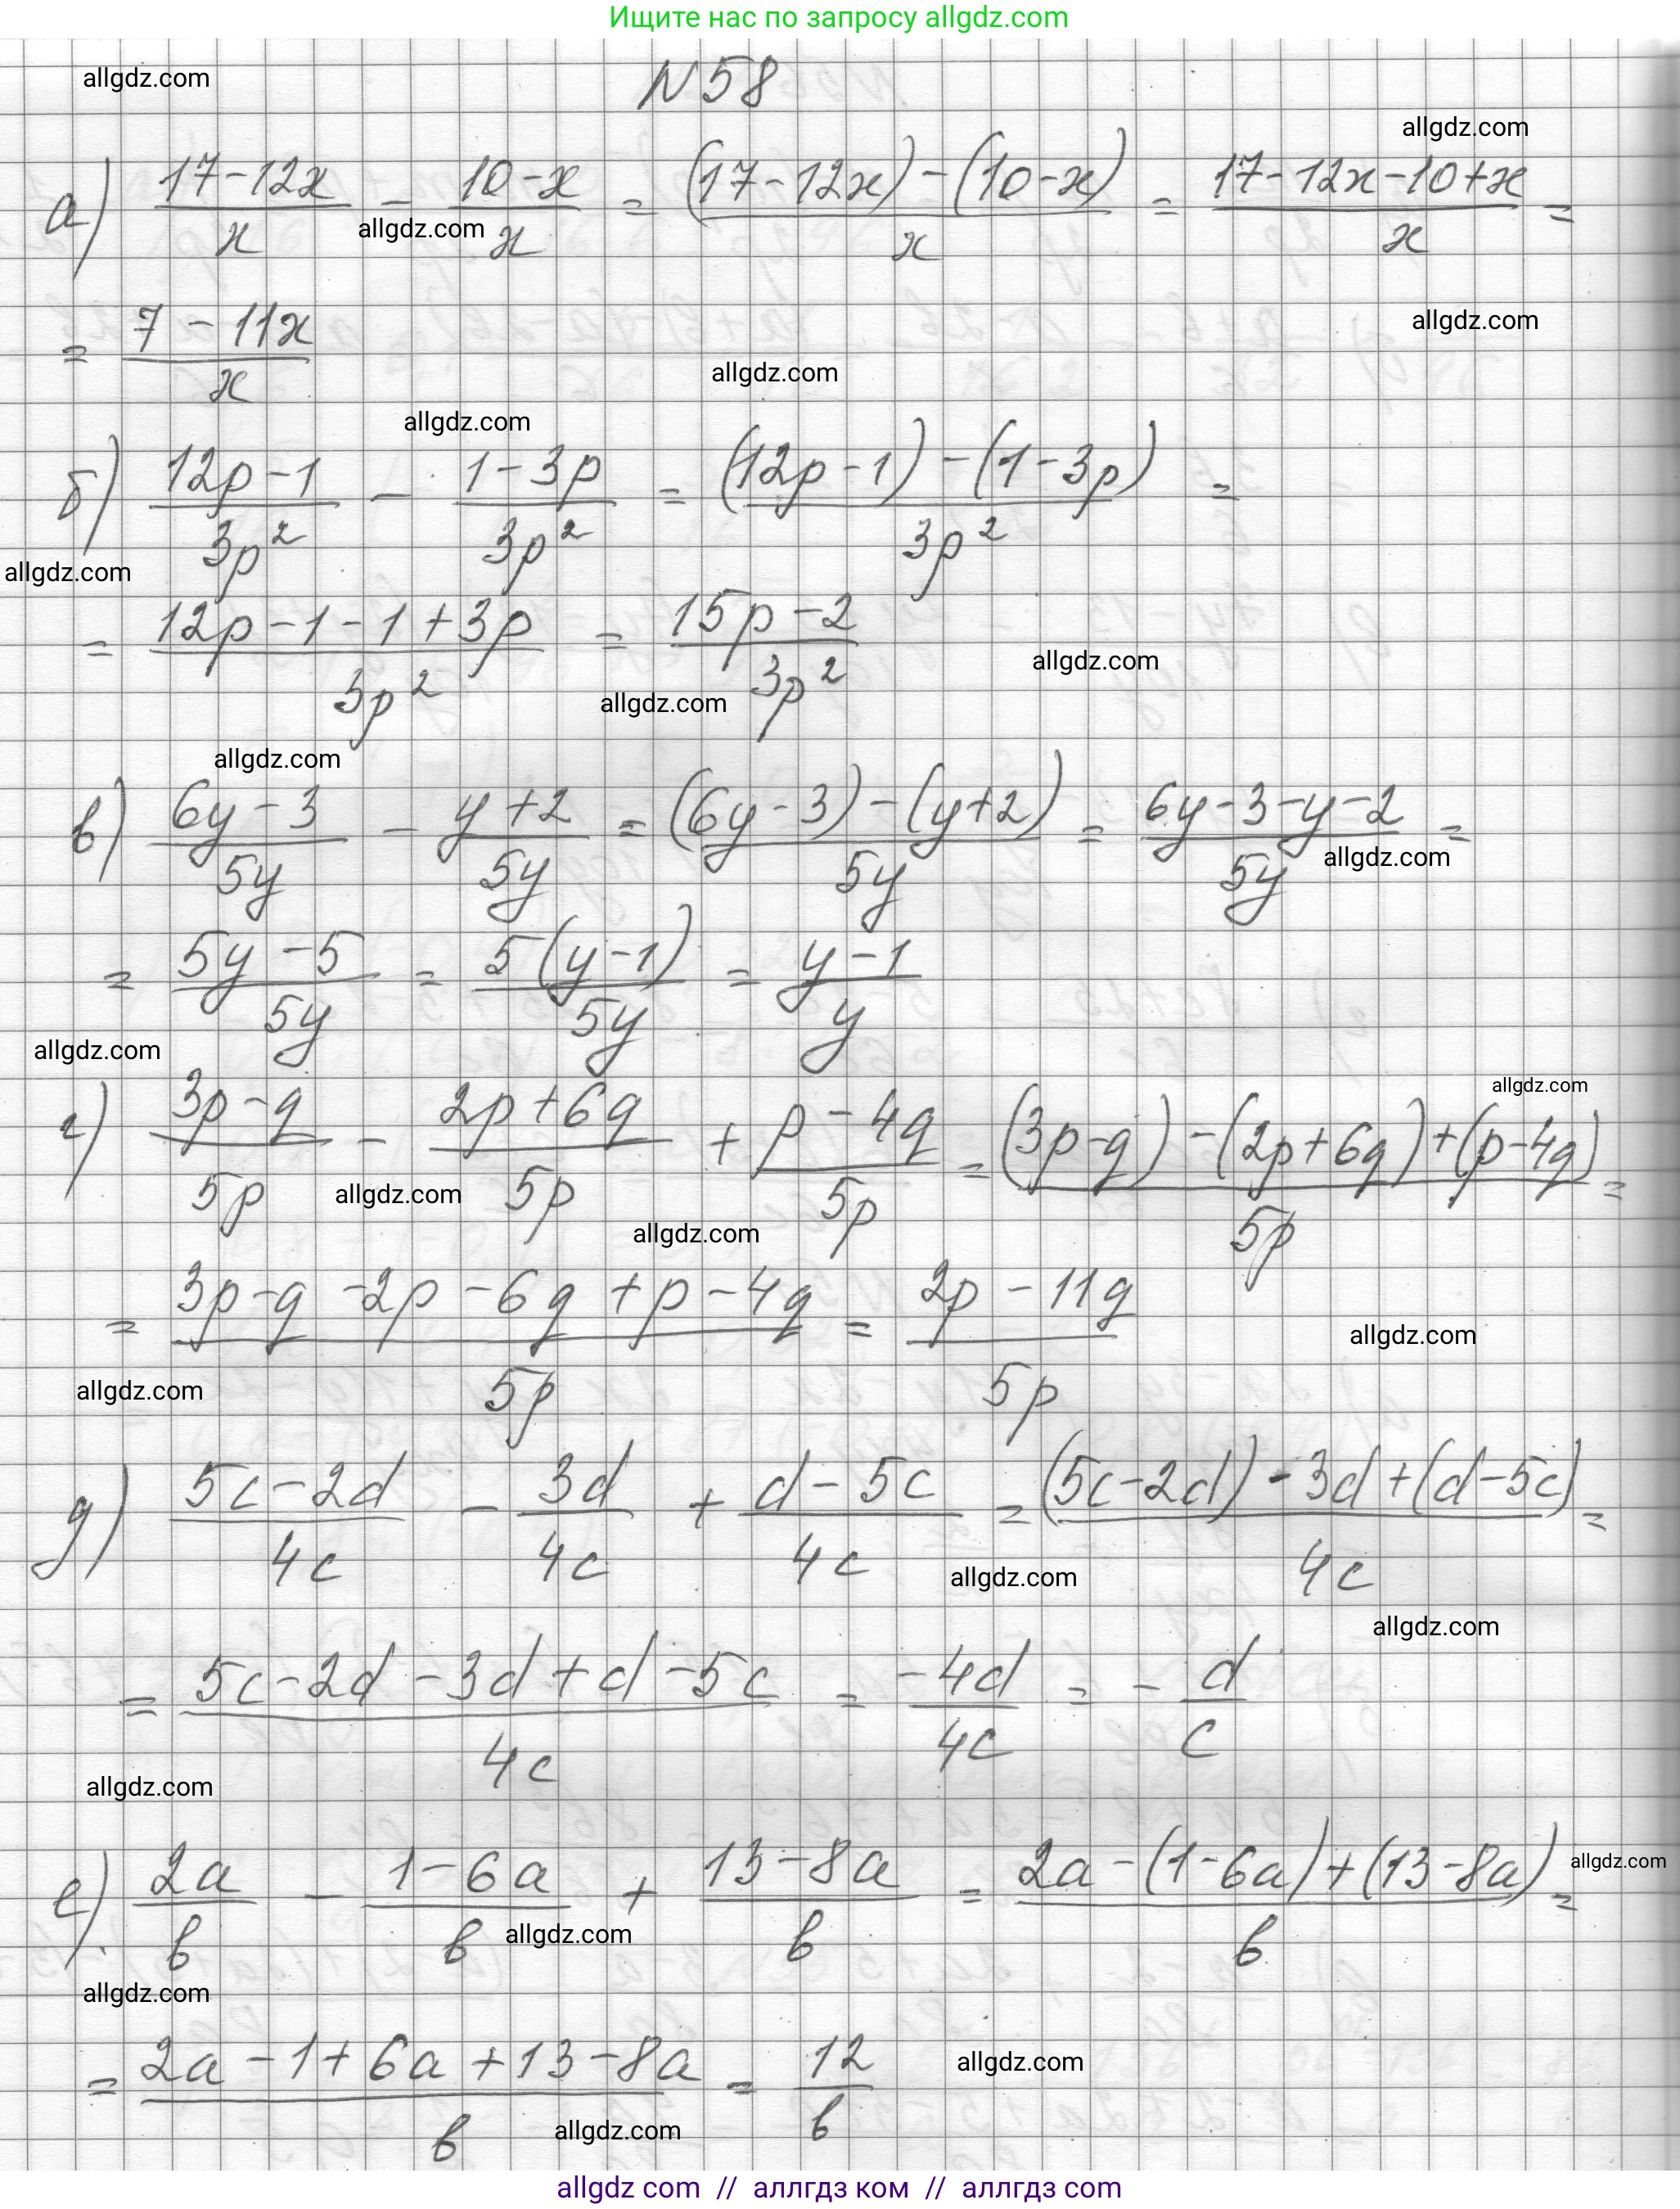 Ищите нас по запросу allgdz.com
allgdz.com
N 58
allgdz.com
а) (17-12x)/x - (10-x)/x = ((17-12x)-(10-x))/x = (17-12x-10+x)/x =
allgdz.com
= (7-11x)/x
allgdz.com
allgdz.com
allgdz.com
б) (12p-1)/3p² - (1-3p)/3p² = ((12p-1)-(1-3p))/3p² =
allgdz.com
= (12p-1-1+3p)/3p² = (15p-2)/3p²
allgdz.com
allgdz.com
allgdz.com
в) (6y-3)/5y - (y+2)/5y = ((6y-3)-(y+2))/5y = (6y-3-y-2)/5y =
allgdz.com
= (5y-5)/5y = 5(y-1)/5y = (y-1)/y
allgdz.com
allgdz.com
г) (3p-q)/5p - (2p+6q)/5p + (p-4q)/5p = ((3p-q)-(2p+6q)+(p-4q))/5p =
allgdz.com
allgdz.com
= (3p-q-2p-6q+p-4q)/5p = (2p-11q)/5p
allgdz.com
allgdz.com
д) (5c-2d)/4c - 3d/4c + (d-5c)/4c = ((5c-2d)-3d+(d-5c))/4c =
allgdz.com
allgdz.com
= (5c-2d-3d+d-5c)/4c = -4d/4c = -d/c
allgdz.com
е) 2a/в - (1-6a)/в + (13-8a)/в = (2a-(1-6a)+(13-8a))/в =
allgdz.com
allgdz.com
allgdz.com
= (2a-1+6a+13-8a)/в = 12/в
allgdz.com
allgdz.com
allgdz com // аллгдз ком // аллгдз com